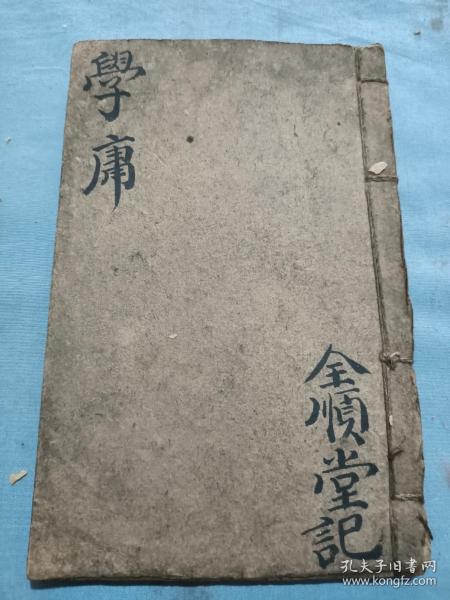 學庸
全順堂記
孔夫子旧书网
www.kongfz.com